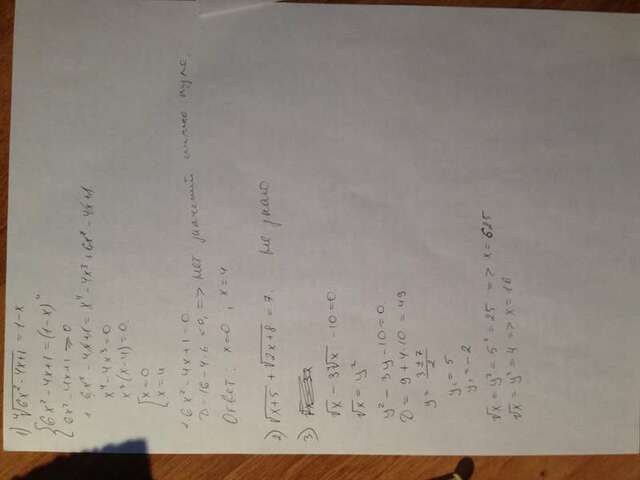 1) ⁴√6x²-4x+1 = 1-x
{6x²-4x+1 = (1-x)⁴
{6x²-4x+1 ⩾ 0
6x²-4x+1 = x⁴-4x³+6x²-4x+1
x⁴-4x³=0
x³(x-4)=0
[x=0
[x=4
6x²-4x+1=0
D=16-4·6<0, => нет значений ниже нуля.
Ответ: x=0, x=4
2) √x+5 + √2x+8 = 7. не знаю
3)
√x - 3⁴√x - 10=0
√x = y²
y²-3y-10=0
D=9+4·10=49
y= 3±7/2
y₁=5
y₂=-2
√x=y²=5²=25 => x=625
√x=y²=4 => x=16